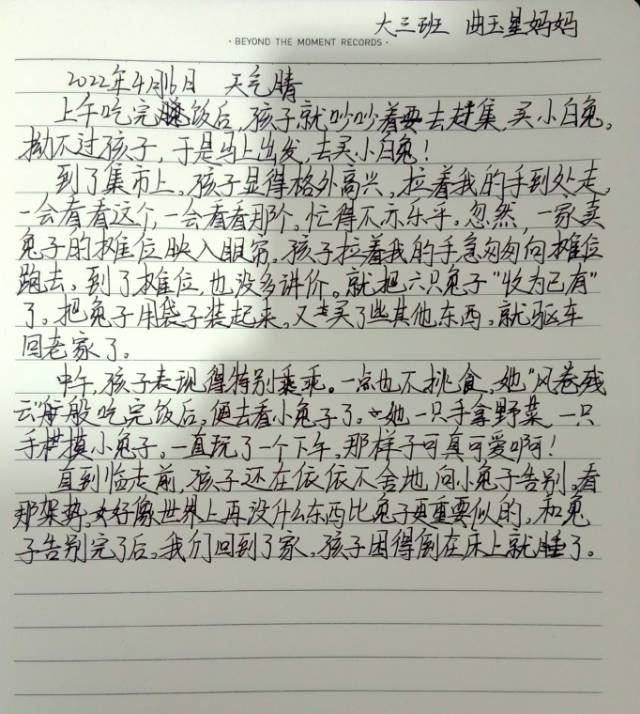 大三班 曲玉星妈妈
· BEYOND THE MOMENT RECORDS ·
2022年4月16日 天气晴
上午吃完饭后,孩子就吵吵着要去赶集,买小白兔。
拗不过孩子,于是马上出发,去买小白兔!
到了集市上,孩子显得格外高兴,拉着我的手到处走,
一会看看这个,一会看看那个,忙得不亦乐乎。忽然,一家卖
兔子的摊位映入眼帘。孩子拉着我的手急匆匆向摊位
跑去,到了摊位,也没多讲价。就把六只兔子"收为己有"
了。把兔子用袋子装起来,又买了些其他东西,就驱车
回老家了。
中午,孩子表现得特别乖乖。一点也不挑食,她"风卷残
云"般吃完饭后,便去看小兔子了。她一只手拿野菜,一只
手摸小兔子。一直玩了一个下午,那样子可真可爱啊!
直到临走前,孩子还在依依不舍地向小兔子告别,看
那架势,好像世界上再没什么东西比兔子更重要似的,和兔
子告别完了后。我们回到了家,孩子困得倒在床上就睡了。